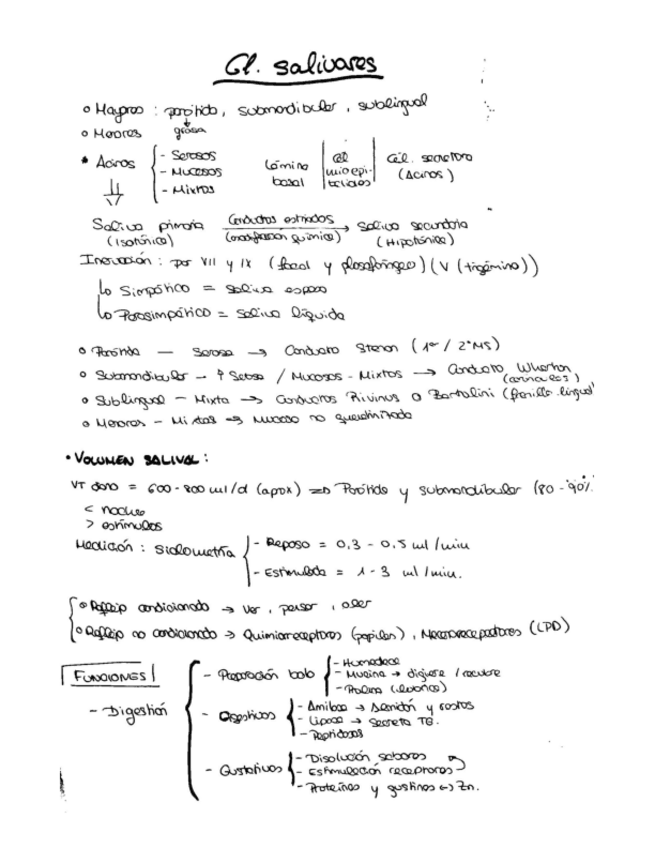 Gl. salivares
Mayores : parótida, submandibular, sublingual
grasa
Menores
Acinos
- Serosos
- Mucosos
- Mixtos
Lámina basal
cél mioepi-
teliales
Cél. secretora
(Acinos)
Saliva primaria
(Isotónica)
Conductos estriados
(modificación química)
Saliva secundaria
(Hipotónica)
Inervación : por VII y IX (facial y glosofaríngeo) (V (trigémino))
Simpático = saliva espesa
Parasimpático = saliva líquida
Parótida — Serosa → Conducto Stenon (1er / 2º MS)
Submandibular - ↑ Serosa / Mucosos - Mixtos → Conducto Wharton
(carúnculas)
Sublingual - Mixta → Conductos Rivinus o Bartolini (frenillo lingual
Menores - Mixtas → Mucosa no queratinizada
• VOLUMEN SALIVAL :
VT diario = 600-800 ml/d (aprox) => Parótida y submandibular (80-90%
< noche
> estímulos
Medición : Sialometría
- Reposo = 0,3 - 0,5 ml/min
- Estimulada = 1-3 ml/min.
Reflejo condicionado → Ver, pensar, oler
Reflejo no condicionado → Quimiorreceptores (papilas), Mecanorreceptores (LPD)
FUNCIONES
- Digestión
- Preparación bolo
- Humedece
- Mucina → digiere / recubre
- Prolina
- Digestivas
- Amilasa → Almidón y restos
- Lipasa → Secreta TG.
- Peptidasas
- Gustativas
- Disolución sabores
- Estimulación receptores
- Proteínas y gustinas ↔ Zn.